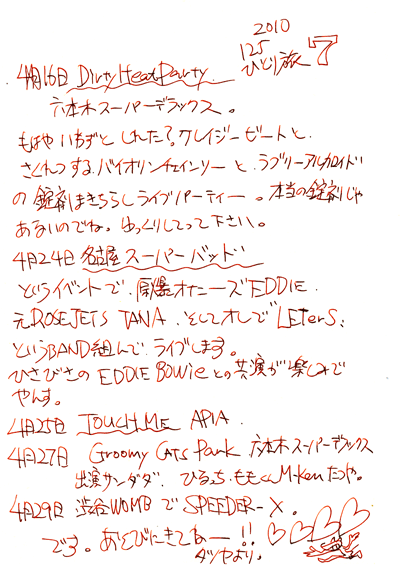 2010
125
ひとり旅 7
4月16日 Dirty Heat Party
六本木スーパーデラックス。
もはや いちずと しれた?クレイジービートと、
さくれつする バイオリンチェインソーと、ラブリーアルカロイド
の 錠剤まきちらし ライブパーティー。本当の錠剤じゃ
あるいのでね。ゆっくりしてって下さい。
4月24日 名古屋 スーパーバッド
というイベントで、原爆オナニーズEDDIE、
元ROSEJETS TANA、そしてオレで"LEterS"
というBAND組んで、ライブします。
ひさびさの EDDIE BOWie との共演が楽しみで
やんす。
4月25日 TOUCH ME APIA.
4月27日 Groomy CATS Punk 六本木スーパーデラックス
出演サンダダ、ひるっち、ももC M-Ken たつや。
4月29日 渋谷WOMBで SPEEDER-X。
です。あそびにきてねー!!
タツヤより。